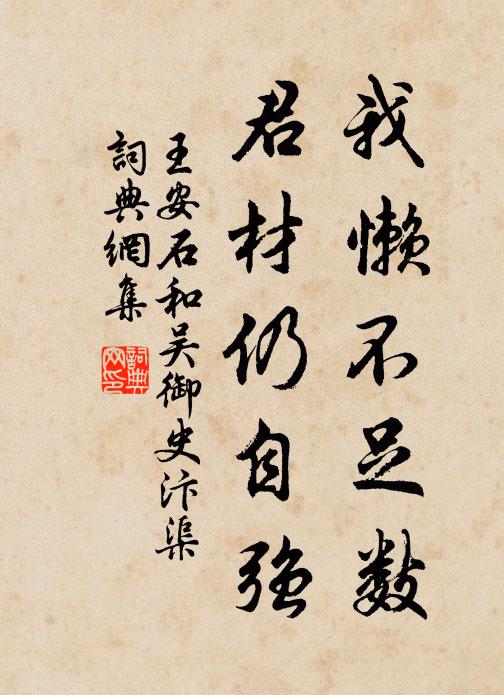 我懒不足数
君材仍自强
王安石和吴御史汴渠
詞典網集
詞典網印